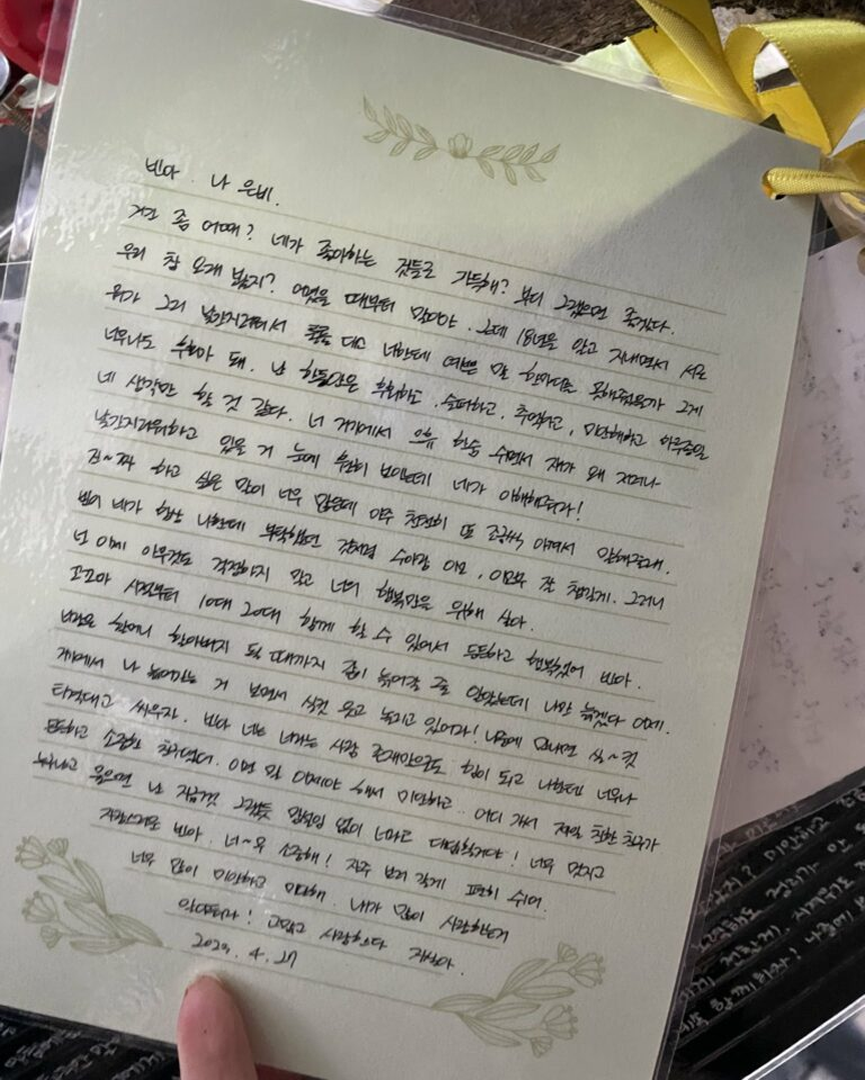 빈아. 나 은비.
거긴 좀 어때? 네가 좋아하는 것들로 가득해? 부디 그랬으면 좋겠다.
우리 참 오래 봤지? 어렸을 때부터 말이야. 근데 18년을 알고 지내면서 서로
뭐가 그리 낯간지러워서 툴툴 대고 너한테 예쁜 말 한마디를 못해줬을까 그게
너무나도 후회가 돼. 난 한동안은 후회하고, 슬퍼하고, 추억하고, 미안해하고 하루종일
네 생각만 할 것 같다. 너 거기에서 으휴 한숨 쉬면서 쟤가 왜 저러나
낯간지러워하고 있을 거 눈에 훤히 보이는데 네가 이해해줘라!
진~짜 하고 싶은 말이 너무 많은데 아주 천천히 또 조금씩 아껴서 말해줄래.
빈아 네가 항상 나한테 부탁했던 것처럼 수아랑 이모, 이모부 잘 챙길게. 그러니
넌 이제 아무것도 걱정하지 말고 너의 행복만을 위해 살아.
꼬꼬마 시절부터 10대 20대 함께 할 수 있어서 든든하고 행복했어 빈아.
너랑은 할머니 할아버지 될 때까지 같이 늙어갈 줄 알았는데 나만 늙겠다 이제.
거기에서 나 늙어가는 거 보면서 실컷 웃고 놀리고 있어라! 나중에 만나면 실~컷
티격대고 싸우자. 빈아 너는 너라는 사람 존재만으로도 힘이 되고 나한테 너무나
든든하고 소중한 친구였다. 이런 말 이제야 해서 미안하고.. 어디 가서 제일 친한 친구가
누구냐고 물으면 난 지금껏 그랬듯 망설임 없이 너라고 대답할거야! 너무 멋지고
자랑스러운 빈아. 너~무 소중해! 자주 보러 갈게 편히 쉬어.
너무 많이 미안하고 미안해. 내가 많이 사랑하는거
알아둬라! 고맙고 사랑한다 자식아.
2023. 4. 27